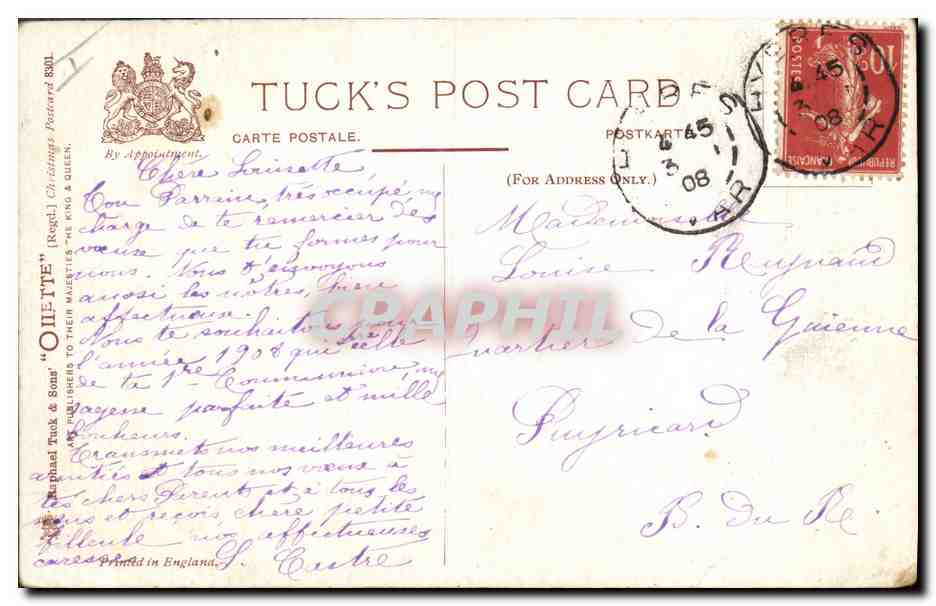 TUCK'S POST CARD
CARTE POSTALE.
POSTKARTE
By Appointment.
(FOR ADDRESS ONLY.)
Raphael Tuck & Sons' "OILETTE" [Regd.] Christmas Postcard 8301.
ART PUBLISHERS TO THEIR MAJESTIES THE KING & QUEEN.
Chère Louisette,
Ton Parrain, très occupé, me
charge de te remercier des
vœux que tu formes pour
nous. Nous t'envoyons
aussi les nôtres, bien
affectueux.
Nous te souhaitons pour
l'année 1908 qui
de ta 1re Communion, une
sagesse parfaite et mille
bonheurs.
Transmets nos meilleures
amitiés et tous nos vœux à
tes chers Parents et à tous les
et reçois, chère petite
filleule nos affectueuses
caresses
L. Castre
Printed in England.
Mademoiselle
Louise Reynaud
Quartier de la Guienne
Puyricard
B. du R
HYERES
VAR
4 45
3 1
08
10
POSTES
REPUBLIQUE FRANCAISE
CPAPHIL